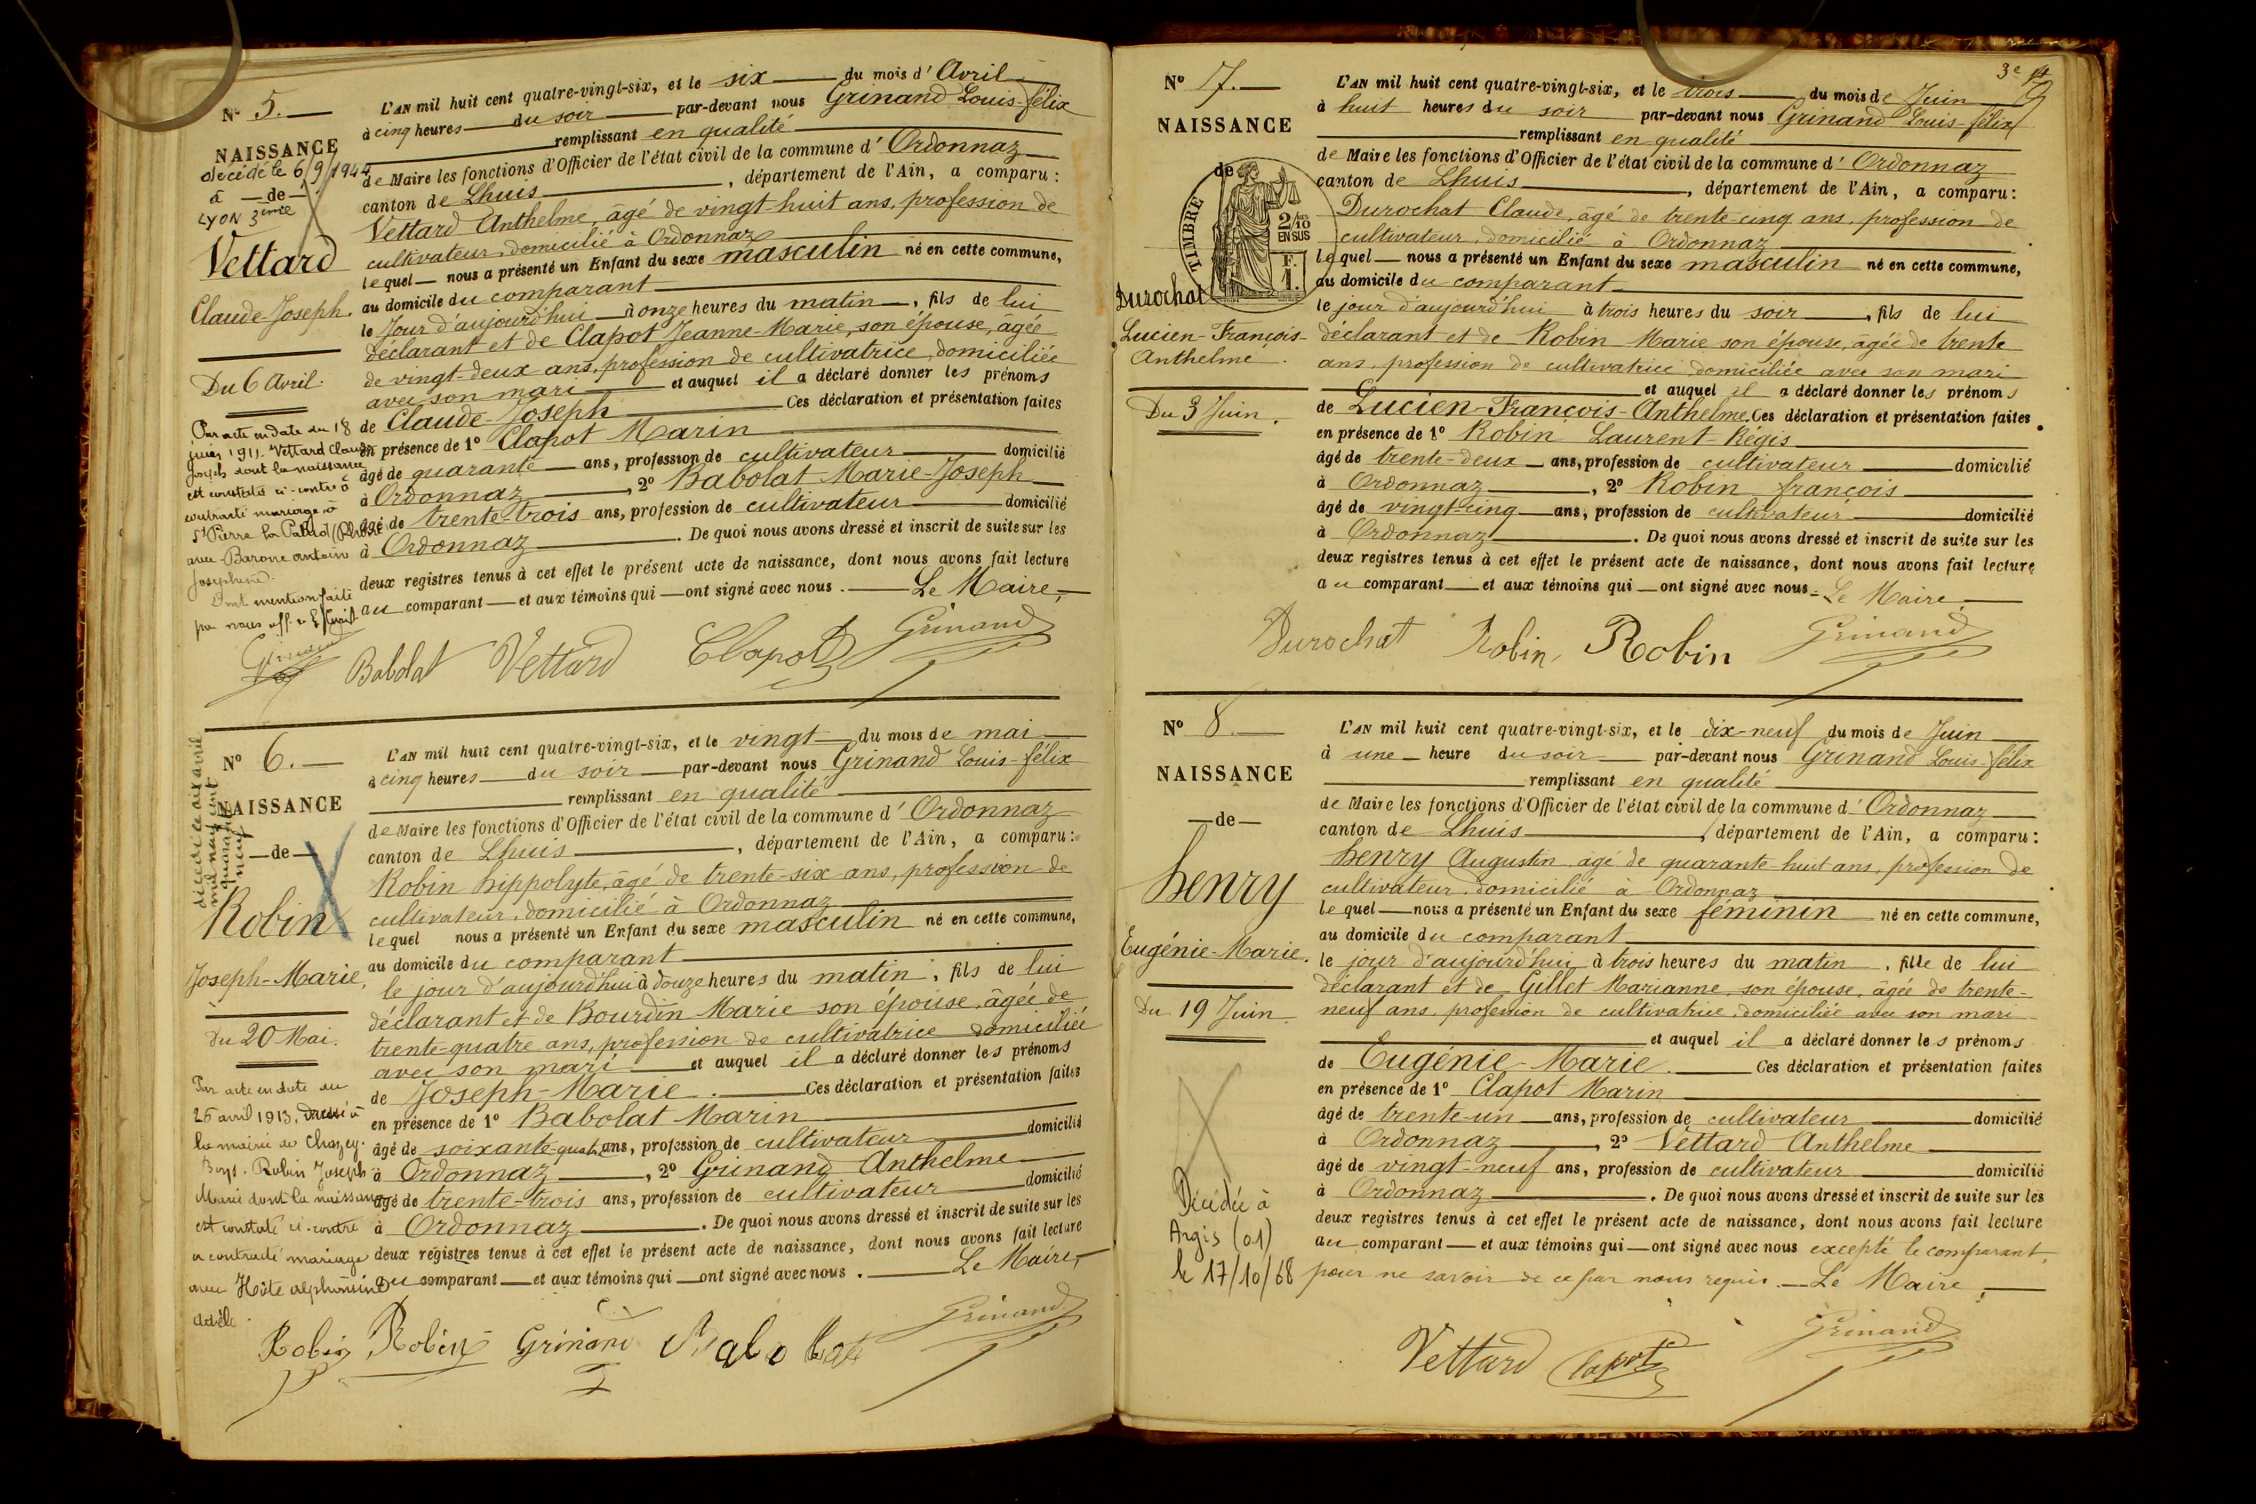 N° 5.
NAISSANCE
décédé le 6/9/1944
à de
LYON 3ème
Vettard
Claude-Joseph.
Du 6 Avril.
Par acte en date du 18
1911. Vettard Claude
Joseph dont la naissance
est constatée ci-contre à
contracté mariage à
St Pierre la Palud (Rhône)
avec Barone
Joséphine.
Dont mention faite
par nous off. de l'
Grinand
L'AN mil huit cent quatre-vingt-six, et le six du mois d'Avril
à cinq heures du soir par-devant nous Grinand Louis-félix
remplissant en qualité
de Maire les fonctions d'Officier de l'état civil de la commune d'Ordonnaz
canton de Lhuis, département de l'Ain, a comparu:
Vettard Anthelme, âgé de vingt-huit ans, profession de
cultivateur, domicilié à Ordonnaz
lequel nous a présenté un Enfant du sexe masculin né en cette commune,
au domicile du comparant
le Jour d'aujourd'hui à onze heures du matin, fils de lui
déclarant et de Clapot Jeanne-Marie, son épouse, âgée
de vingt-deux ans, profession de cultivatrice, domiciliée
avec son mari et auquel il a déclaré donner les prénoms
de Claude-Joseph Ces déclaration et présentation faites
en présence de 1° Clapot Marin
âgé de quarante ans, profession de cultivateur domicilié
à Ordonnaz, 2° Babolat Marie-Joseph
âgé de trente-trois ans, profession de cultivateur domicilié
à Ordonnaz. De quoi nous avons dressé et inscrit de suite sur les
deux registres tenus à cet effet le présent acte de naissance, dont nous avons fait lecture
au comparant et aux témoins qui ont signé avec nous. Le Maire,
Babolat Vettard Clapot Grinand
N° 6.
NAISSANCE
de
décédé le dix avril
mil neuf cent
quarante
neuf
Robin
Joseph-Marie,
Du 20 Mai.
Par acte en date du
25 avril 1913, dressé à
la mairie de Chazey-
Bons. Robin Joseph
Marie dont la naissance
est constaté ci-contre
a contracté mariage
avec Hôte Alphonsine
Adèle.
L'AN mil huit cent quatre-vingt-six, et le vingt du mois de mai
à cinq heures du soir par-devant nous Grinand Louis-félix
remplissant en qualité
de Maire les fonctions d'Officier de l'état civil de la commune d'Ordonnaz
canton de Lhuis, département de l'Ain, a comparu:
Robin hippolyte, âgé de trente-six ans, profession de
cultivateur, domicilié à Ordonnaz
lequel nous a présenté un Enfant du sexe masculin né en cette commune,
au domicile du comparant
le jour d'aujourd'hui à douze heures du matin, fils de lui
déclarant et de Bourdin Marie son épouse, âgée de
trente-quatre ans, profession de cultivatrice domiciliée
avec son mari et auquel il a déclaré donner les prénoms
de Joseph-Marie. Ces déclaration et présentation faites
en présence de 1° Babolat Marin
âgé de soixante-quatre ans, profession de cultivateur domicilié
à Ordonnaz, 2° Grinand Anthelme
âgé de trente-trois ans, profession de cultivateur domicilié
à Ordonnaz. De quoi nous avons dressé et inscrit de suite sur les
deux registres tenus à cet effet le présent acte de naissance, dont nous avons fait lecture
au comparant et aux témoins qui ont signé avec nous. Le Maire,
Robin Robin Grinand Babolat Grinand
3e
N° 7.
NAISSANCE
de
TIMBRE
2/10
EN SUS
F.
1.
Durochat
Lucien-François-
Anthelme.
Du 3 Juin.
L'AN mil huit cent quatre-vingt-six, et le trois du mois de Juin
à huit heures du soir par-devant nous Grinand Louis-félix
remplissant en qualité
de Maire les fonctions d'Officier de l'état civil de la commune d'Ordonnaz
canton de Lhuis, département de l'Ain, a comparu:
Durochat Claude, âgé de trente-cinq ans, profession de
cultivateur, domicilié à Ordonnaz
lequel nous a présenté un Enfant du sexe masculin né en cette commune,
au domicile du comparant
le jour d'aujourd'hui à trois heures du soir, fils de lui
déclarant et de Robin Marie son épouse, âgée de trente
ans, profession de cultivatrice, domiciliée avec son mari
et auquel il a déclaré donner les prénoms
de Lucien-François-Anthelme. Ces déclaration et présentation faites
en présence de 1° Robin Laurent-Régis
âgé de trente-deux ans, profession de cultivateur domicilié
à Ordonnaz, 2° Robin françois
âgé de vingt-cinq ans, profession de cultivateur domicilié
à Ordonnaz. De quoi nous avons dressé et inscrit de suite sur les
deux registres tenus à cet effet le présent acte de naissance, dont nous avons fait lecture
au comparant et aux témoins qui ont signé avec nous. Le Maire,
Durochat Robin, Robin Grinand
N° 8.
NAISSANCE
de
henry
Eugénie-Marie.
Du 19 Juin.
Décédée à
Argis (01)
le 17/10/68
L'AN mil huit cent quatre-vingt-six, et le dix-neuf du mois de Juin
à une heure du soir par-devant nous Grinand Louis-félix
remplissant en qualité
de Maire les fonctions d'Officier de l'état civil de la commune d'Ordonnaz
canton de Lhuis, département de l'Ain, a comparu:
henry Augustin âgé de quarante-huit ans, profession de
cultivateur, domicilié à Ordonnaz
lequel nous a présenté un Enfant du sexe féminin né en cette commune,
au domicile du comparant
le jour d'aujourd'hui à trois heures du matin, fille de lui
déclarant et de Gillet Marianne, son épouse, âgée de trente-
neuf ans, profession de cultivatrice, domiciliée avec son mari
et auquel il a déclaré donner les prénoms
de Eugénie-Marie. Ces déclaration et présentation faites
en présence de 1° Clapot Marin
âgé de trente-un ans, profession de cultivateur domicilié
à Ordonnaz, 2° Vettard Anthelme
âgé de vingt-neuf ans, profession de cultivateur domicilié
à Ordonnaz. De quoi nous avons dressé et inscrit de suite sur les
deux registres tenus à cet effet le présent acte de naissance, dont nous avons fait lecture
au comparant et aux témoins qui ont signé avec nous excepté le comparant
pour ne savoir de ce par nous requis. Le Maire,
Vettard Clapot Grinand